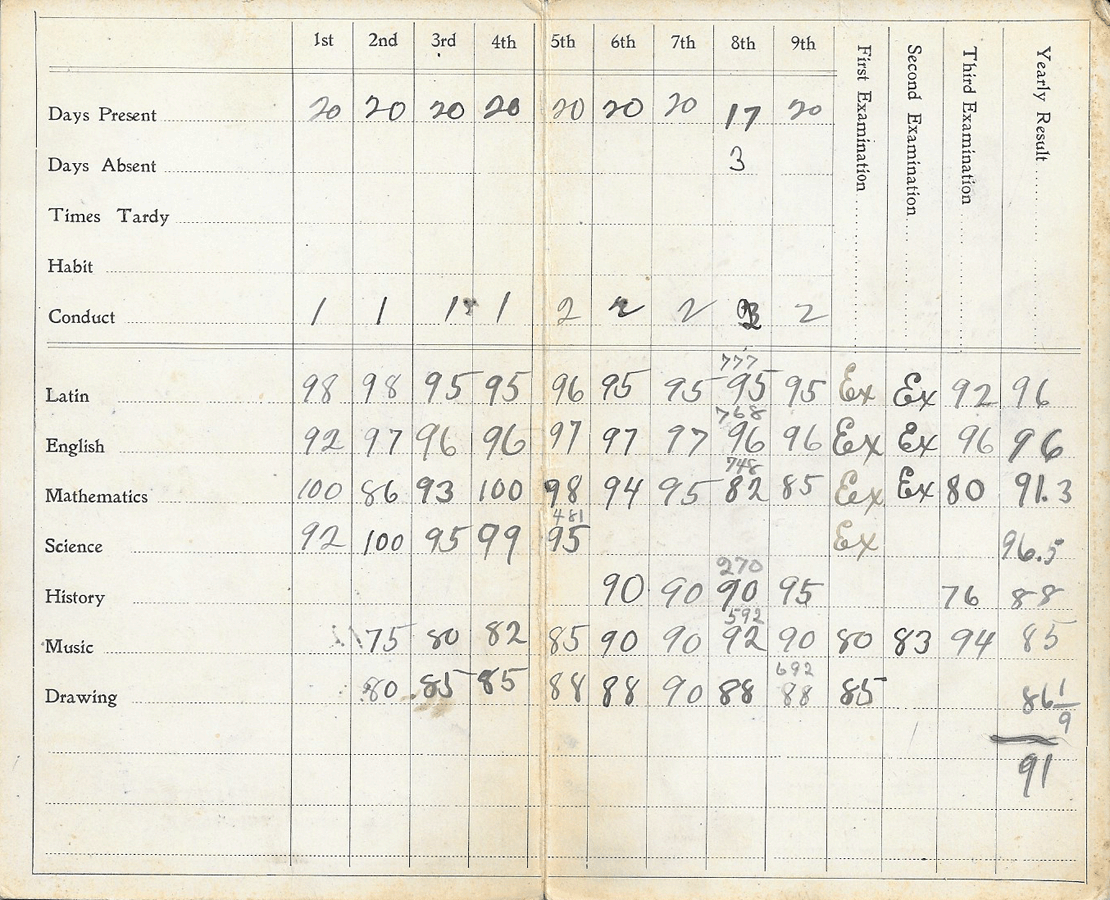 1st 2nd 3rd 4th 5th 6th 7th 8th 9th First Examination Second Examination Third Examination Yearly Result
Days Present 20 20 20 20 20 20 20 17 20
Days Absent 3
Times Tardy
Habit
Conduct 1 1 1 1 2 2 2 2
777
Latin 98 98 95 95 96 95 95 95 95 Ex Ex 92 96
768
English 92 97 96 96 97 97 97 96 96 Ex Ex 96 96
748
Mathematics 100 86 93 100 98 94 95 82 85 Ex Ex 80 91.3
481
Science 92 100 95 99 95 Ex 96.5
270
History 90 90 90 95 76 88
592
Music 75 80 82 85 90 90 92 90 80 83 94 85
692
Drawing 80 85 85 88 88 90 88 88 85 86 1/9
91